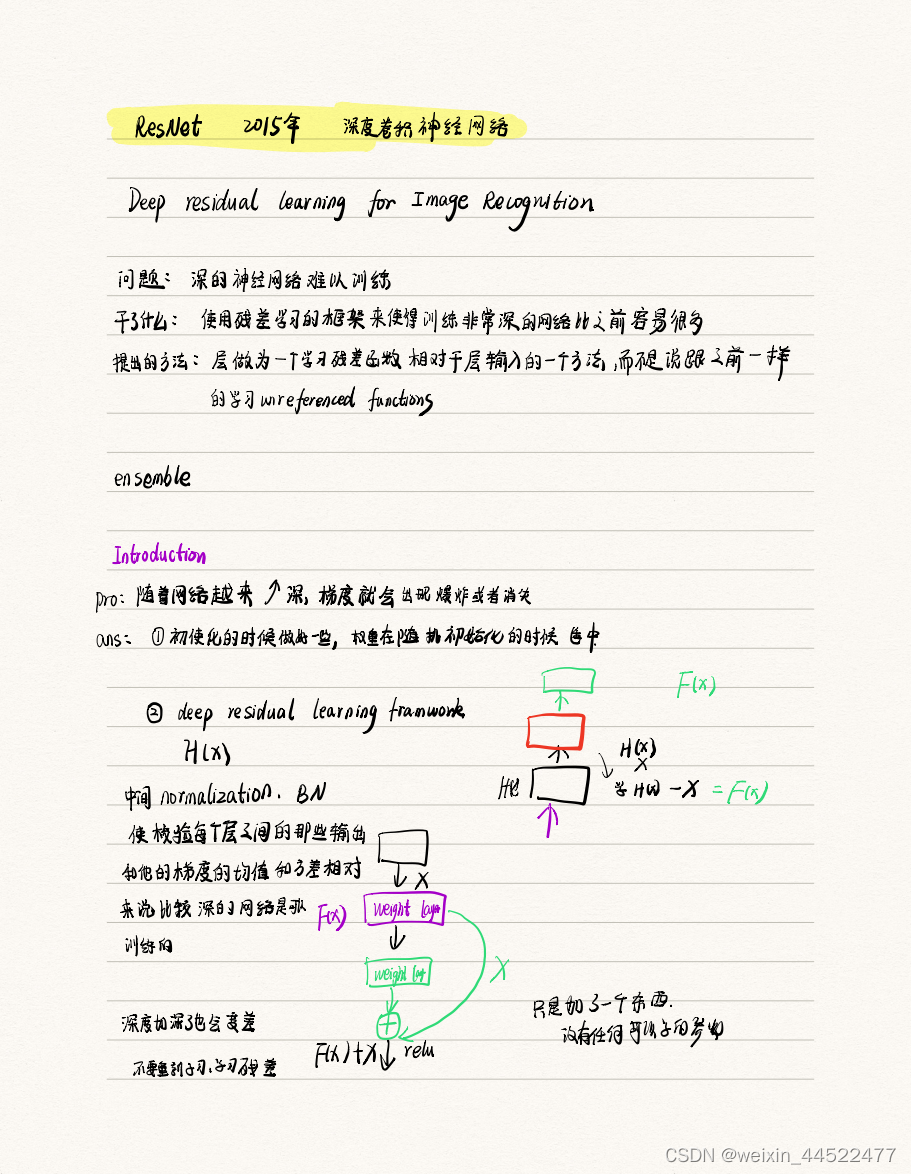 ResNet 2015年 深度卷积神经网络
Deep residual learning for Image Recognition
问题: 深的神经网络难以训练
干了什么: 使用残差学习的框架来使得训练非常深的网络比之前容易很多
提出的方法: 层做为一个学习残差函数 相对于层输入的一个方法,而不是说跟之前一样
的学习 unreferenced functions
ensemble
Introduction
pro: 随着网络越来↗深, 梯度就会出现爆炸或者消失
ans: ①初使化的时候做好一些, 权重在随机初始化的时候
② deep residual learning framwork
H(x)
F(x)
H(x)
X
学H(x) - X = F(x)
中间 normalization. BN
使校验每个层之间的那些输出
和他的梯度的均值和方差相对
来说比较深的网络是
训练的
X
F(x) weight layer
weight lay
X
+
F(x)+X relu
深度加深了也会变差
学习残差
只是加了一个东西.
没有任何可以学的参数
CSDN @weixin_44522477